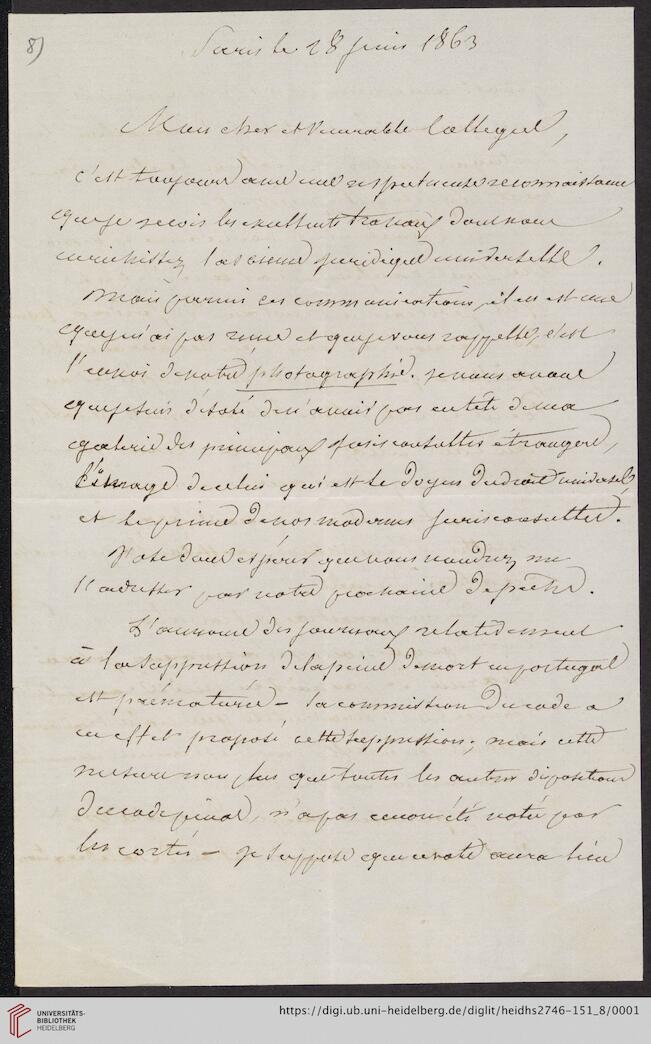 8)
Paris le 28 juin 1863
Mon cher et vénérable Collègue,
c'est toujours avec une respectueuse reconnaissance
que je reçois les excellents travaux dont vous
enrichissez la science juridique universelle.
Mais parmi ces communications, il en est une
que je n'ai pas reçue et que je vous rappelle, c'est
l'envoi de votre photographie. Je vous avoue
que je suis désolé de n'avoir pas en tête de ma
galerie des principaux jurisconsultes étrangers,
l'image de celui qui est le doyen du droit universel
et le prince de nos modernes jurisconsultes.
J'ose donc espérer que vous voudrez me
l'adresser par votre prochaine dépêche.
L'annonce des journaux relativement
à la suppression de la peine de mort en portugal
est prématurée – la commission du code a
en effet proposé cette suppression; mais cette
mesure non plus que toutes les autres dispositions
du code pénal, n'a pas encore été votée par
les cortès – je suppose que ce vote aura lieu
UNIVERSITÄTS-
BIBLIOTHEK
HEIDELBERG
https://digi.ub.uni-heidelberg.de/diglit/heidhs2746-151_8/0001